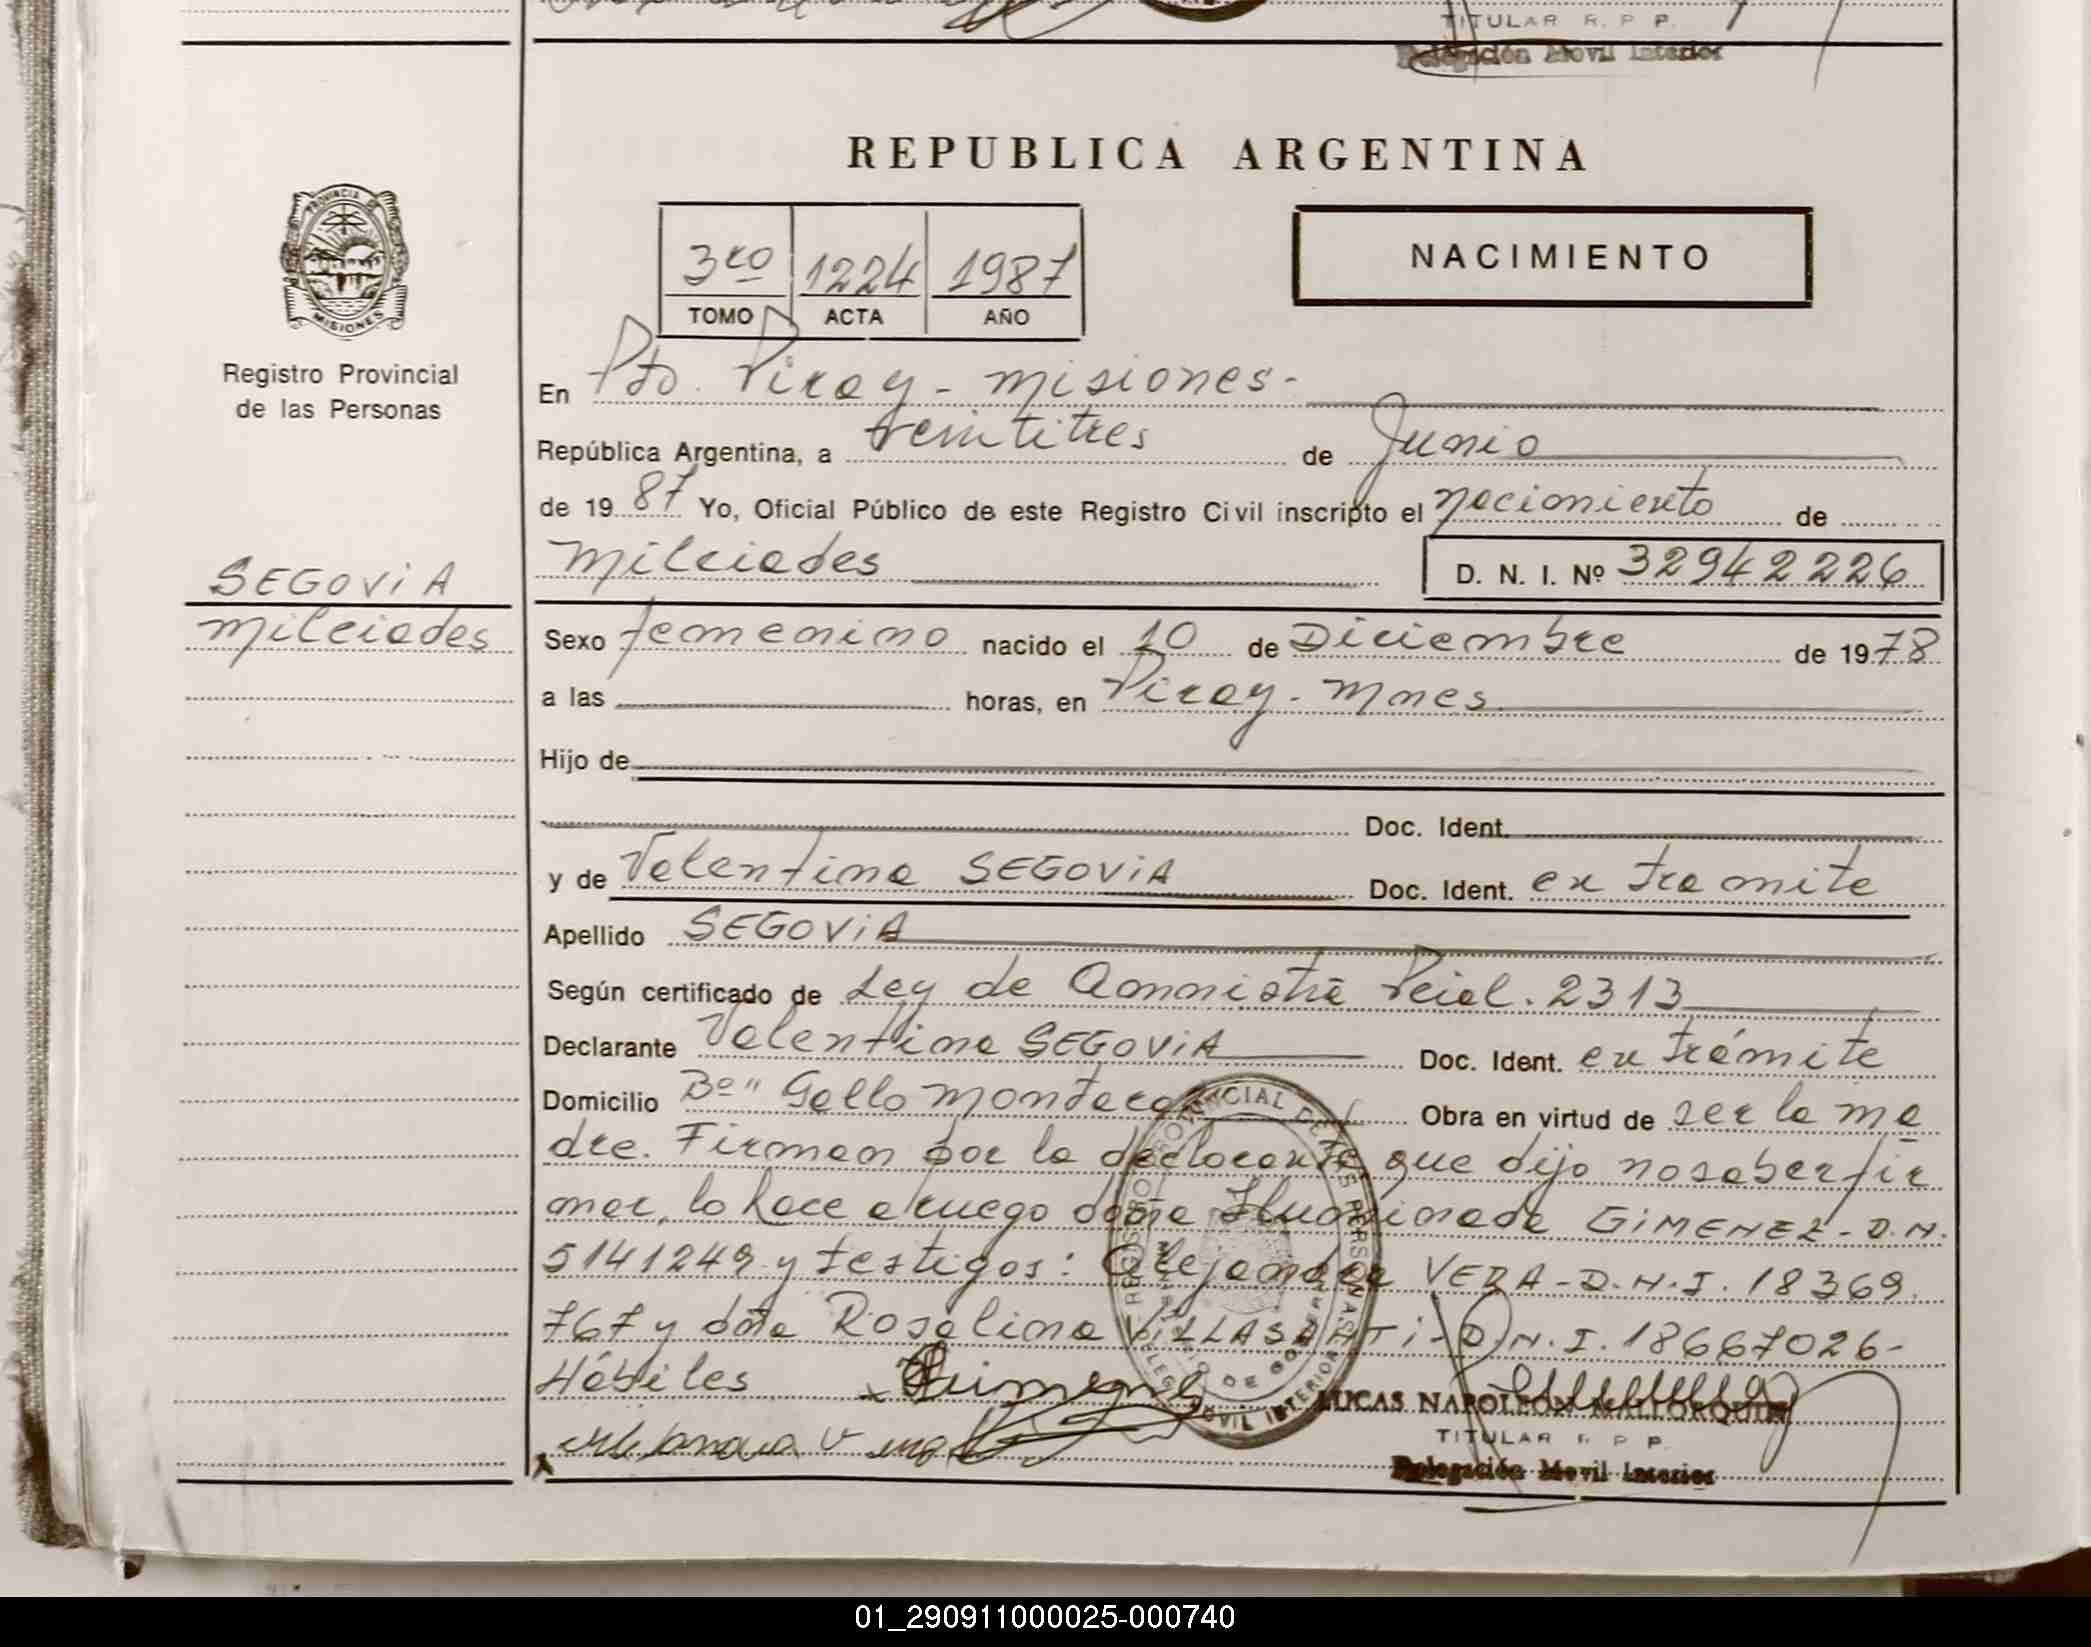 TITULAR R. P. P.
Delegación Movil Interior
REPUBLICA ARGENTINA
PROVINCIA DE
MISIONES
Registro Provincial
de las Personas
3ro 1224 1987
TOMO ACTA AÑO
NACIMIENTO
En Pto. Piray - Misiones -
República Argentina, a veintitres de Junio
de 19 87 Yo, Oficial Público de este Registro Civil inscripto el nacimiento de
Milciades D. N. I. Nº 32942226
SEGOVIA
Milciades
Sexo femenino nacido el 10 de Diciembre de 19 78
a las horas, en Piray - Mnes
Hijo de
Doc. Ident.
y de Valentina SEGOVIA Doc. Ident. en tramite
Apellido SEGOVIA
Según certificado de Ley de Amnistia Pcial. 2313
Declarante Valentina SEGOVIA Doc. Ident. en trámite
Domicilio Bº" Gallo Montero Obra en virtud de ser la ma
dre. Firman por la declarante, que dijo no saber fir
mar, lo hace a ruego doña Iluminada GIMENEZ - D.N.
5141249 y testigos: Alejandra VERA - D.N.I. 18369
767 y dña Rosalina VILLASANTI - D.N.I. 18667026 -
Hábiles
LUCAS NAPOLEON MALLORQUIN
TITULAR R. P. P.
Delegación Movil Interior
01_290911000025-000740